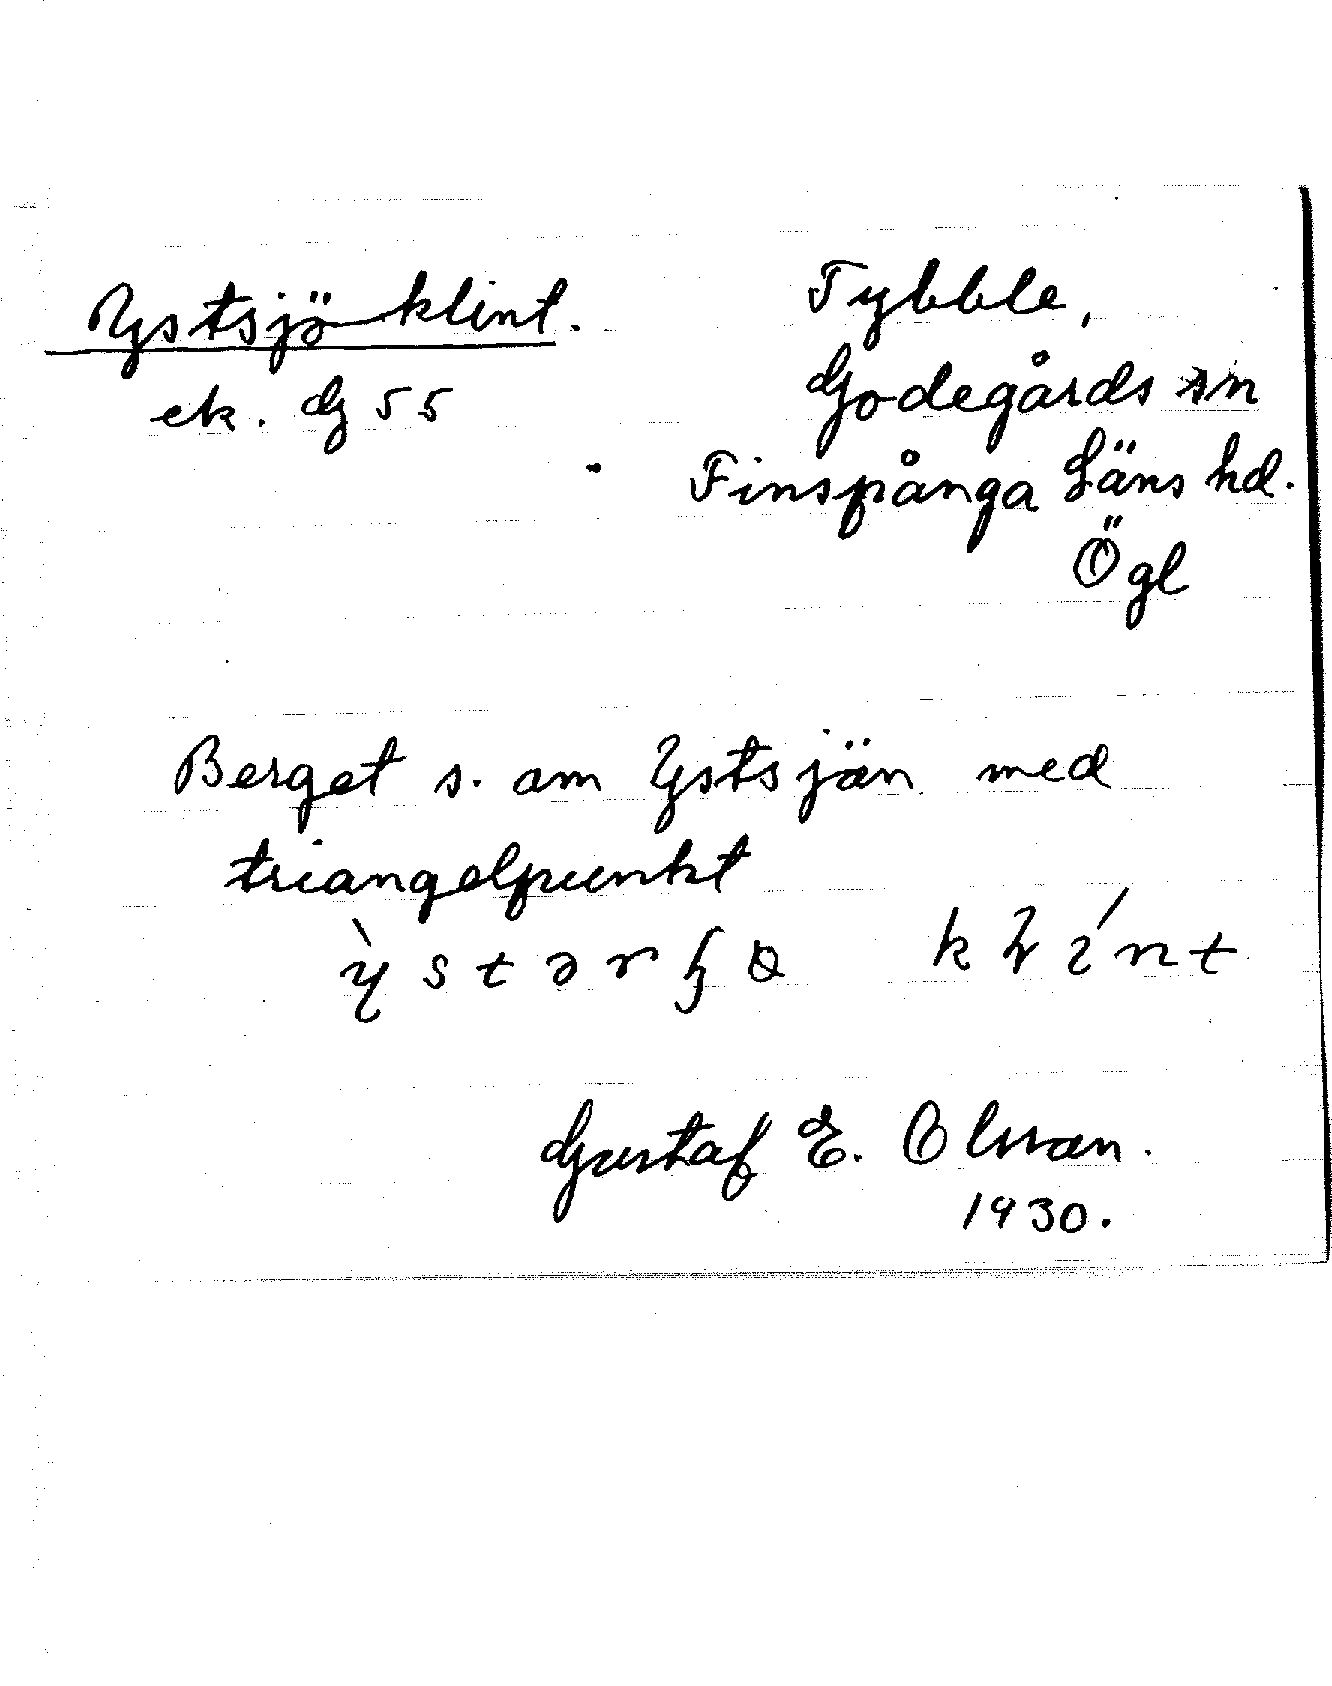 Ystsjö klint.
ek. G 55
Tybble,
Godegårds sn
Finspånga Läns hd.
Ögl
Berget s. om Ystsjön med
triangelpunkt
Gustaf E. Olsson.
1930.